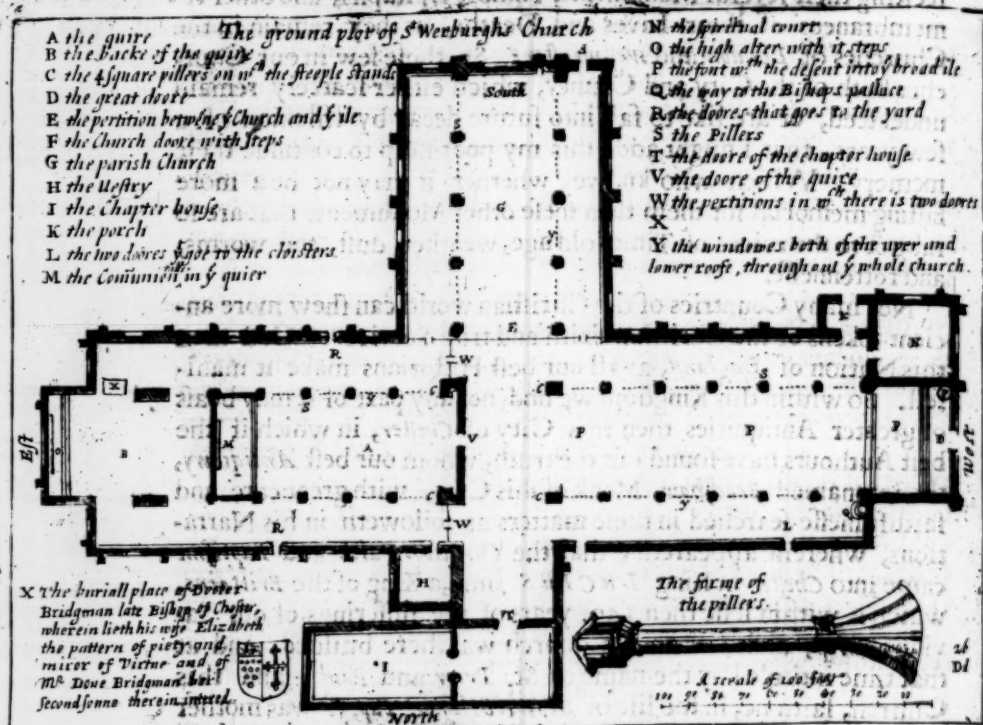 The ground plot of St Werburghs Church
A the quire
B the backe of the quire
C the 4 square pillers on wch the steeple stands
D the great doore
E the pertition betwene ye Church and ye ile
F the Church doore with steps
G the parish Church
H the Uestry
I the Chapter house
K the porch
L the two doores yt goe to the cloisters
M the Comunion table in ye quier
N the spiritual court
O the high alter with it steps
P the font wth the desent into ye broad ile
Q the way to the Bishops pallace
R the doores that goes to the yard
S the Pillers
T the doore of the chapter house
V the doore of the quire
W the pertitions in wch there is two doores
X
Y the windowes both of the uper and
lower roofe, throughout ye whole church
South
Est
West
North
X The buriall place of Doctor
Bridgman late Bishop of Chester,
wherein lieth his wife Elizabeth
the pattern of piety and
miror of Virtue and, of
Mr Doue Bridgman, his
second sonne therein intered
The forme of
the pillers
A scale of 100 fo
100 90 80 70 60 50 40 30 20 10